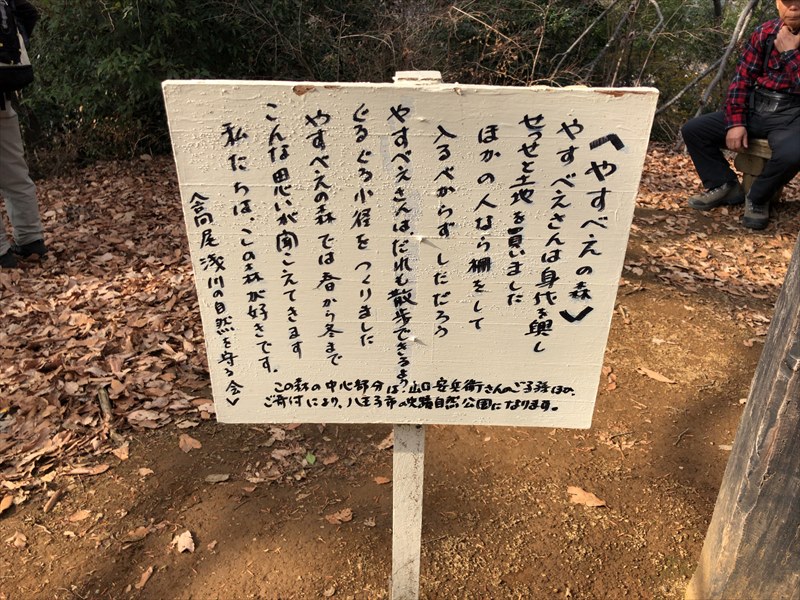 〈やすべえの森〉
やすべえさんは身代を興し
せっせと土地を買いました
ほかの人なら柵をして
入るべからず しただろう
やすべえさんは、だれも散歩できるよう
ぐるぐる小径をつくりました
やすべえの森では春から冬まで
こんな思いが聞こえてきます
私たちは、この森が好きです。
〈高尾・浅川の自然を守る会〉
この森の中心部分は、山口安兵衛さんのご子孫の
ご寄付により、八王子市の 自然公園になります。